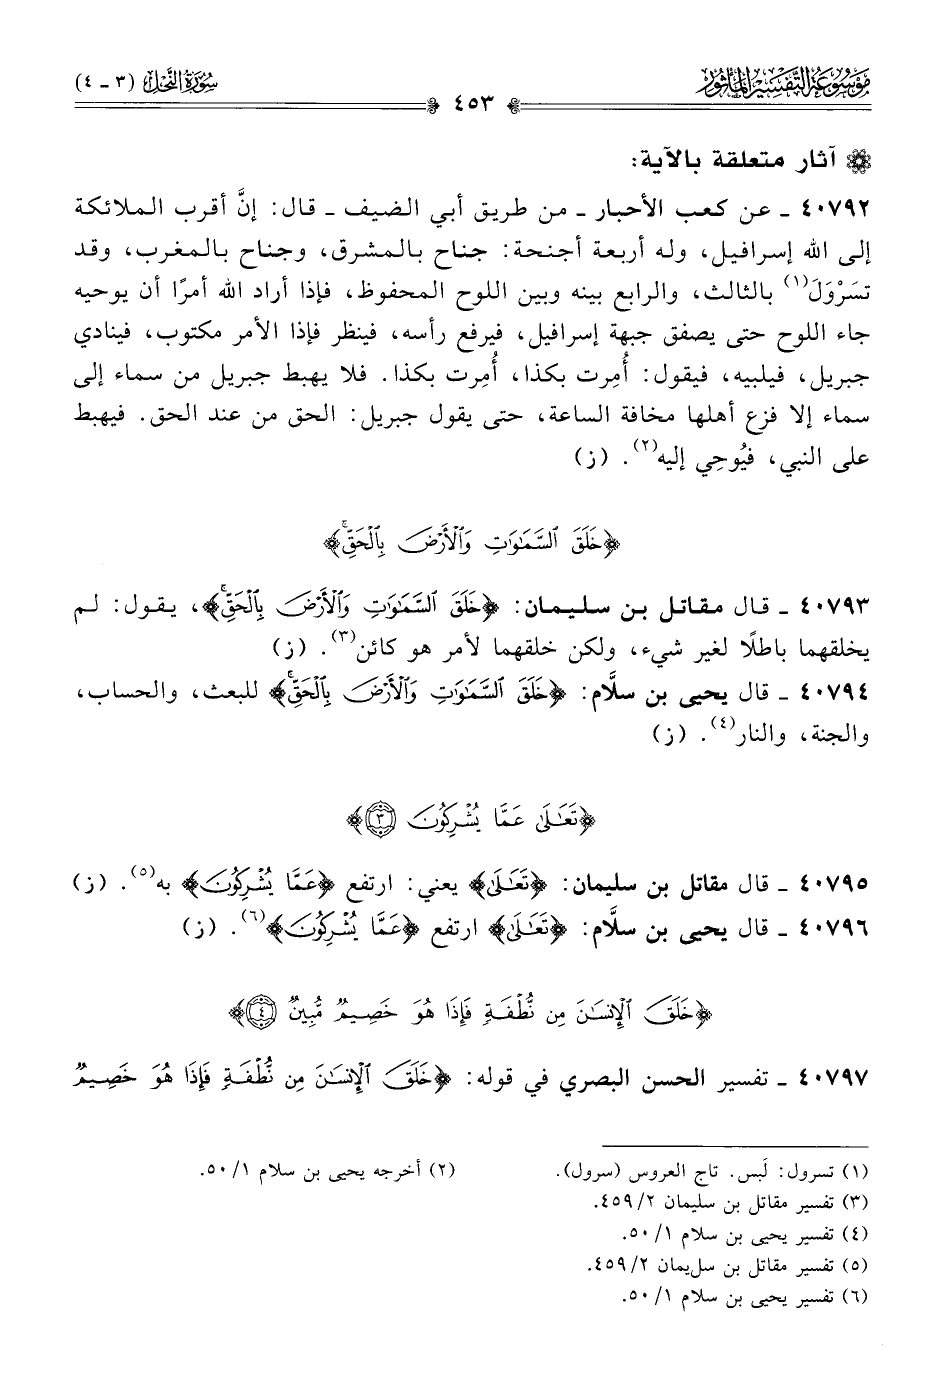 موسوعة التفسير المأثور
سورة النحل (٣ - ٤)
٤٥٣
آثار متعلقة بالآية:
٤٠٧٩٢ - عن كعب الأحبار - من طريق أبي الضيف - قال: إنَّ أقرب الملائكة
إلى الله إسرافيل، وله أربعة أجنحة: جناح بالمشرق، وجناح بالمغرب، وقد
تسَرْوَلَ(١) بالثالث، والرابع بينه وبين اللوح المحفوظ، فإذا أراد الله أمرًا أن يوحيه
جاء اللوح حتى يصفق جبهة إسرافيل، فيرفع رأسه، فينظر فإذا الأمر مكتوب، فينادي
جبريل، فيلبيه، فيقول: أُمِرت بكذا، أُمِرت بكذا. فلا يهبط جبريل من سماء إلى
سماء إلا فزع أهلها مخافة الساعة، حتى يقول جبريل: الحق من عند الحق. فيهبط
على النبي، فيُوحِي إليه(٢). (ز)
﴿خَلَقَ السَّمَٰوَٰتِ وَٱلْأَرْضَ بِٱلْحَقِّۚ﴾
٤٠٧٩٣ - قال مقاتل بن سليمان: ﴿خَلَقَ السَّمَٰوَٰتِ وَٱلْأَرْضَ بِٱلْحَقِّۚ﴾، يقول: لم
يخلقهما باطلًا لغير شيء، ولكن خلقهما لأمر هو كائن(٣). (ز)
٤٠٧٩٤ - قال يحيى بن سلَّام: ﴿خَلَقَ السَّمَٰوَٰتِ وَٱلْأَرْضَ بِٱلْحَقِّۚ﴾ للبعث، والحساب،
والجنة، والنار(٤). (ز)
﴿تَعَٰلَىٰ عَمَّا يُشْرِكُونَ ٣﴾
٤٠٧٩٥ - قال مقاتل بن سليمان: ﴿تَعَٰلَىٰ﴾ يعني: ارتفع ﴿عَمَّا يُشْرِكُونَ﴾ به(٥). (ز)
٤٠٧٩٦ - قال يحيى بن سلَّام: ﴿تَعَٰلَىٰ﴾ ارتفع ﴿عَمَّا يُشْرِكُونَ﴾(٦). (ز)
﴿خَلَقَ ٱلْإِنسَٰنَ مِن نُّطْفَةٍ فَإِذَا هُوَ خَصِيمٌ مُّبِينٌ ٤﴾
٤٠٧٩٧ - تفسير الحسن البصري في قوله: ﴿خَلَقَ ٱلْإِنسَٰنَ مِن نُّطْفَةٍ فَإِذَا هُوَ خَصِيمٌ
(١) تسرول: لَبس. تاج العروس (سرول).
(٢) أخرجه يحيى بن سلام ١/ ٥٠.
(٣) تفسير مقاتل بن سليمان ٢/ ٤٥٩.
(٤) تفسير يحيى بن سلام ١/ ٥٠.
(٥) تفسير مقاتل بن سليمان ٢/ ٤٥٩.
(٦) تفسير يحيى بن سلام ١/ ٥٠.